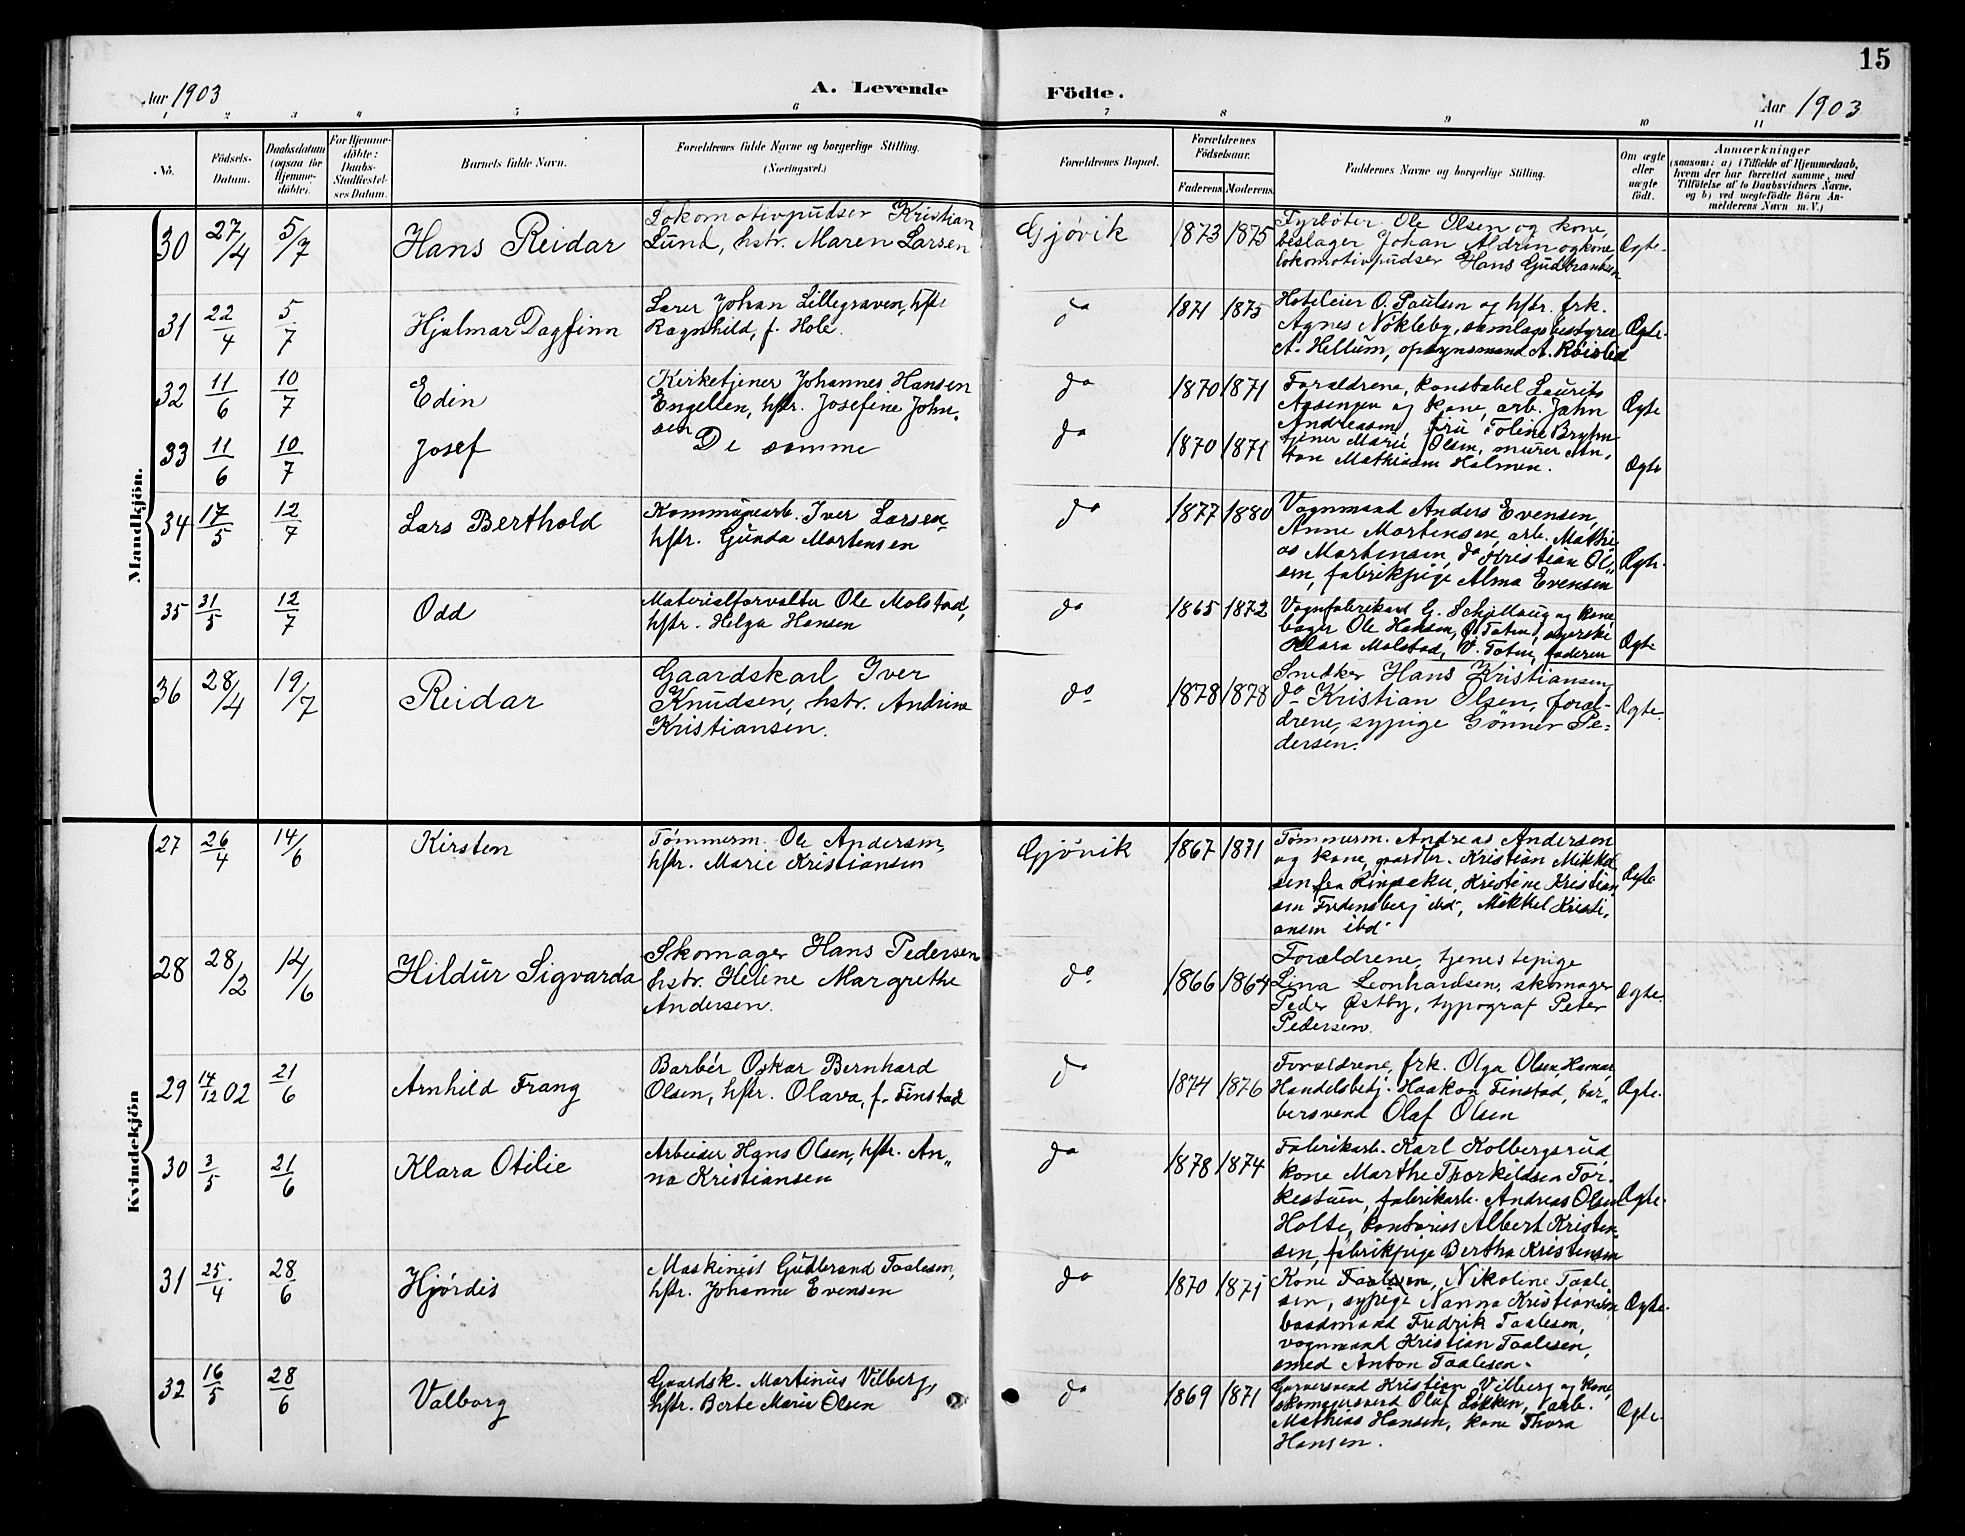 15
Aar 1903
A. Levende Födte.
Aar 1903
1 2 3 4 5 6 7 8 9 10 11
No.
Födsels-
Datum.
Daabsdatum
(ogsaa for
Hjemme-
döbte).
For Hjemme-
döbte:
Daabs-
Stadfæstel-
ses Datum.
Barnets fulde Navn.
Forældrenes fulde Navne og borgerlige Stilling.
(Næringsvei.)
Forældrenes Bopæl.
Forældrenes
Födselsaar.
Faderens. Moderens.
Faddernes Navne og borgerlige Stilling.
Om ægte
eller
uægte
födt.
Anmærkninger
(saasom: a) i Tilfælde af Hjemmedaab,
hvem der har forrettet samme, med
Tilföielse af to Daabsvidners Navne.
og b) ved uægtefödte Börn An-
melderens Navn m. V.)
Mandkjön.
30 27/4 5/7 Hans Reidar
Lokomotivpudser Kristian
Lund, hstr. Maren Larsen
Gjøvik 1873 1875
Fyrbøter Ole Olsen og kone,
beslager Johan Aldrin og kone,
lokomotivpudser Hans Gudbrandsen
Ægte.
31 22/4 5/7 Hjalmar Dagfinn
Lærer Johan Lillegraven, hstr
Ragnhild, f. Hole.
do 1871 1875
Hoteleier O. Paulsen og hstr. frk.
Agnes Nøkleby, samlagsbestyrer
A. Hellum, opsynsmand A. Røisled
Ægte.
32 11/6 10/7 Edin
Kirketjener Johannes Hansen
Engelien, hstr. Josefine John-
sen
do 1870 1871
Forældrene, konstabel Laurits
Aasengen og kone, arb. John
Andreasen, fru Toline Bryhn
Ægte
33 11/6 10/7 Josef
De samme
do 1870 1871
tjener Marie Olsen, murer An-
ton Mathiasen Holmen.
Ægte
34 17/5 12/7 Lars Berthold
Kommunearb. Iver Larsen,
hstr. Gunda Martensen
do 1877 1880
Vognmand Anders Evensen,
Anne Mortensen, arb. Mathi-
as Mortensen, do Kristian Ol-
sen, fabrikpige Alma Evensen
Ægte.
35 31/5 12/7 Odd
Materialforvalter Ole Molstad,
hstr. Helga Hansen
do 1865 1872
Vognfabrikant G. Schjellaug og kone,
bager Ole Hansen, Ø. Toten, syerske
Klara Molstad, V. Toten, faderen
Ægte
36 28/4 19/7 Reidar
Gaardskarl Iver
Knudsen, hstr. Andrine
Kristiansen.
do 1878 1878
Snedker Hans Kristiansen,
do Kristian Olsen, foræl-
drene, sypige Gønner Pe-
dersen.
Ægte.
Kvindekjön
27 26/4 14/6 Kirsten
Tømmerm. Ole Andersen,
hstr. Marie Kristiansen
Gjøvik 1867 1871
Tømmerm. Andreas Andersen
og kone, gaardbr. Kristian Mikkel
sen fra Ringsaker, Kristine Kristian
sen Fredensberg ibd, Mikkel Kristi-
ansen ibd.
Ægte
28 28/2 14/6 Hildur Sigvarda
Skomager Hans Pedersen
hstr. Helene Margrethe
Andersen.
do 1866 1864
Forældrene, tjenestepige
Lina Leonhardsen, skomager
Peder Østby, typograf Peter
Pedersen.
Ægte.
29 14/12 02 21/6 Arnhild Frang
Barbér Oskar Bernhard
Olsen, hstr. Olava, f. Finstad
do 1874 1876
Forældrene, frk. Olga Olsen Hamar
Handelsbetj. Haakon Finstad, bar-
bersvend Olaf Olsen
Ægte.
30 3/5 21/6 Klara Otilie
Arbeider Hans Olsen, hstr. An-
na Kristiansen
do 1878 1874
Fabrikarb. Karl Kolbergsrud
kone Marthe Thorkildsen Tor-
kestuen, fabrikarb. Andreas Olsen
Holte, kontorist Albert Kristen-
sen, fabrikpige Bertha Kristensen
Ægte.
31 25/4 28/6 Hjørdis
Maskinist Gudbrand Taalesen,
hstr. Johanne Evensen
do 1870 1871
Kone Taalesen, Nikoline Taale
sen, sypige Nanna Kristiansen,
baadmand Fredrik Taalesen,
vognmand Kristian Taalesen,
smed Anton Taalesen.
Ægte.
32 16/5 28/6 Valborg
Gaardsk. Martinus Vilberg,
hstr. Berte Marie Olsen
do 1869 1871
Garversvend Kristian Vilberg og kone,
skomagersvend Oluf Løkken, arb.
Mathias Hansen, kone Thora
Hansen.
Ægte.